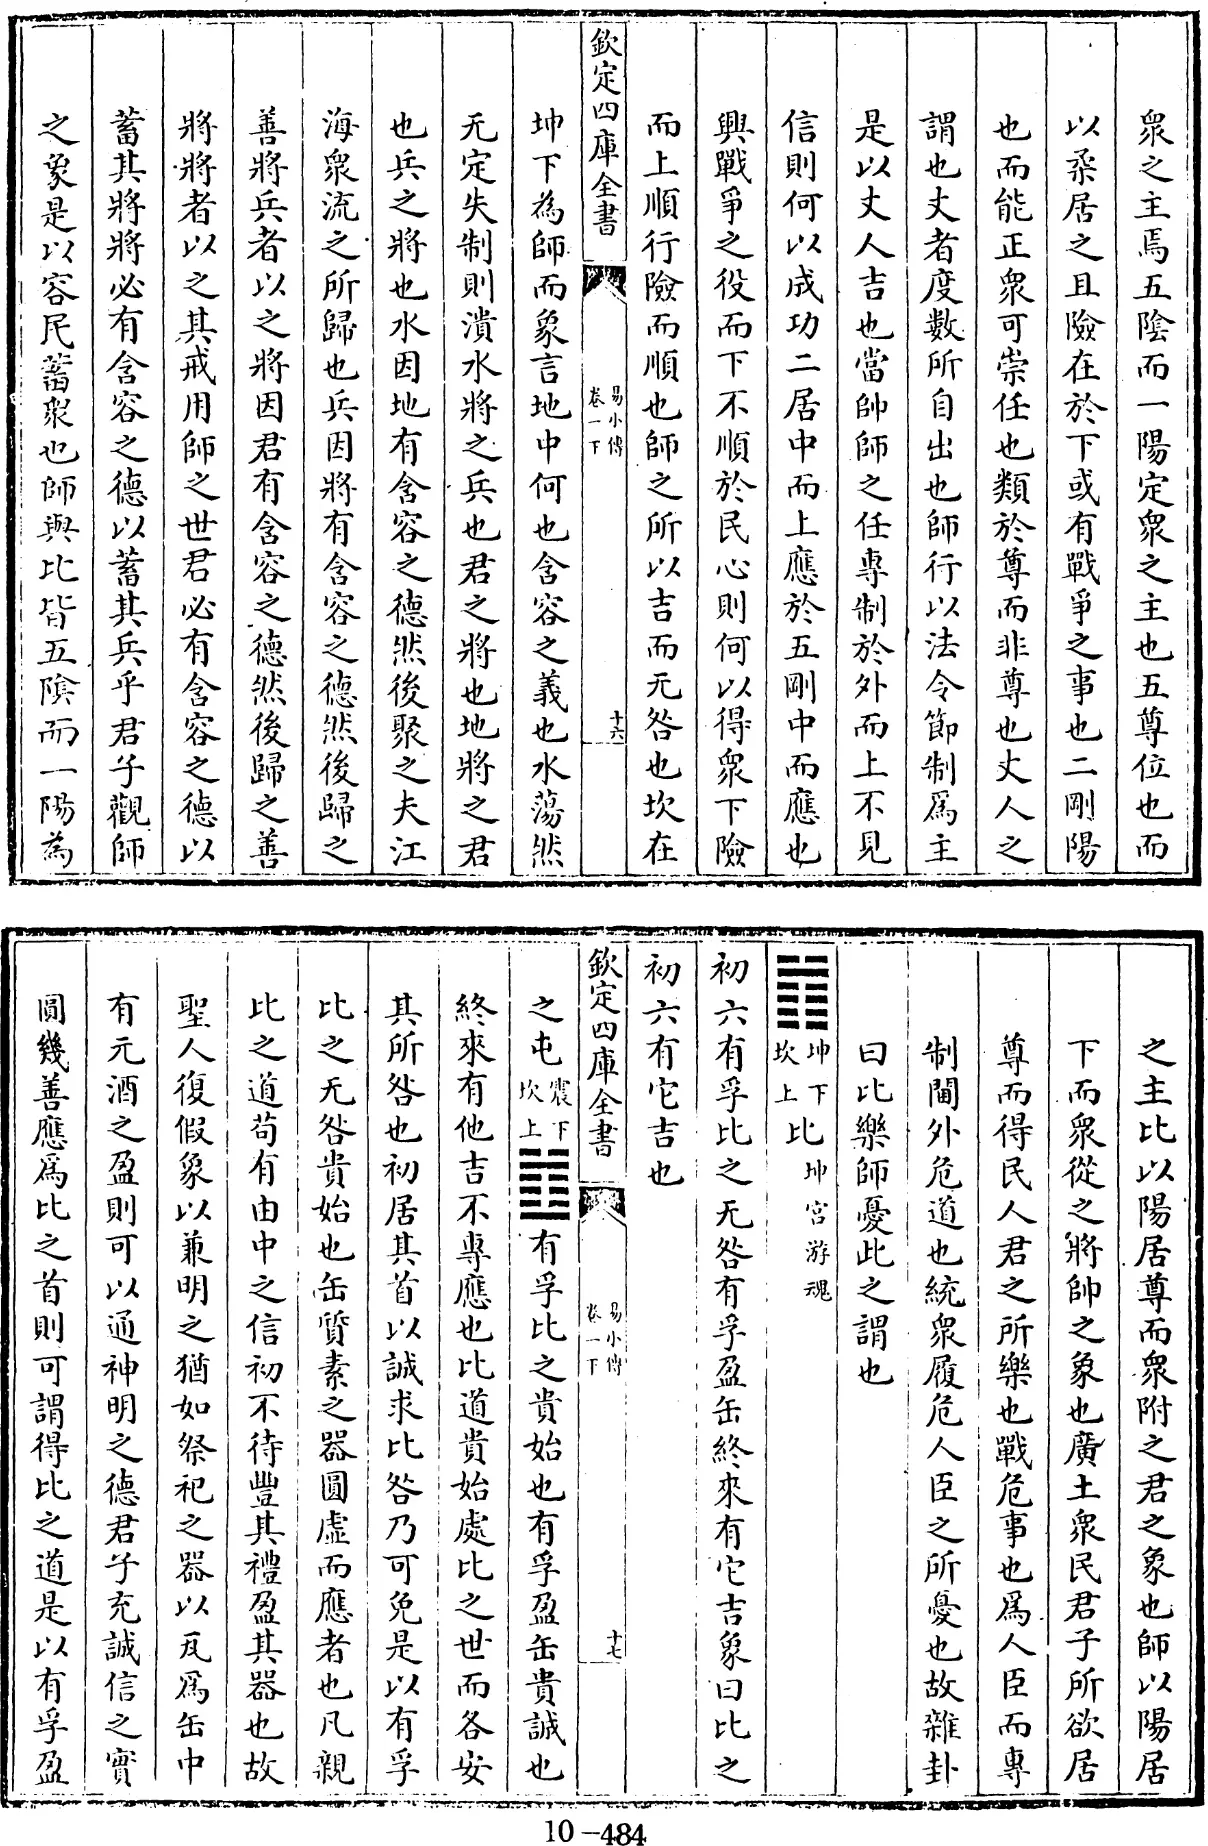 衆之主焉五陰而一陽定衆之主也五尊位也而
以柔居之且險在於下或有戰爭之事也二剛陽
也而能正衆可崇任也類於尊而非尊也丈人之
謂也丈者度數所自出也師行以法令節制爲主
是以丈人吉也當帥師之任專制於外而上不見
信則何以成功二居中而上應於五剛中而應也
興戰爭之役而下不順於民心則何以得衆下險
而上順行險而順也師之所以吉而无咎也坎在
欽定四庫全書
易小傳
卷一下
十六
坤下為師而象言地中何也含容之義也水蕩然
无定失制則潰水將之兵也君之將也地將之君
也兵之將也水因地有含容之德然後聚之夫江
海衆流之所歸也兵因將有含容之德然後歸之
善將兵者以之將因君有含容之德然後歸之善
將將者以之其戒用師之世君必有含容之德以
蓄其將將必有含容之德以蓄其兵乎君子觀師
之象是以容民蓄衆也師與比皆五陰而一陽為
之主比以陽居尊而衆附之君之象也師以陽居
下而衆從之將帥之象也廣土衆民君子所欲居
尊而得民人君之所樂也戰危事也爲人臣而專
制閫外危道也統衆履危人臣之所憂也故雜卦
曰比樂師憂此之謂也
䷇坤下坎上比坤宮游魂
初六有孚比之无咎有孚盈缶終來有它吉象曰比之
初六有它吉也
欽定四庫全書
易小傳
卷一下
十七
之屯震下坎上䷂有孚比之貴始也有孚盈缶貴誠也
終來有他吉不專應也比道貴始處比之世而各安
其所咎也初居其首以誠求比咎乃可免是以有孚
比之无咎貴始也缶質素之器圓虛而應者也凡親
比之道苟有由中之信初不待豐其禮盈其器也故
聖人復假象以兼明之猶如祭祀之器以瓦爲缶中
有元酒之盈則可以通神明之德君子充誠信之實
圓幾善應爲比之首則可謂得比之道是以有孚盈
10-484